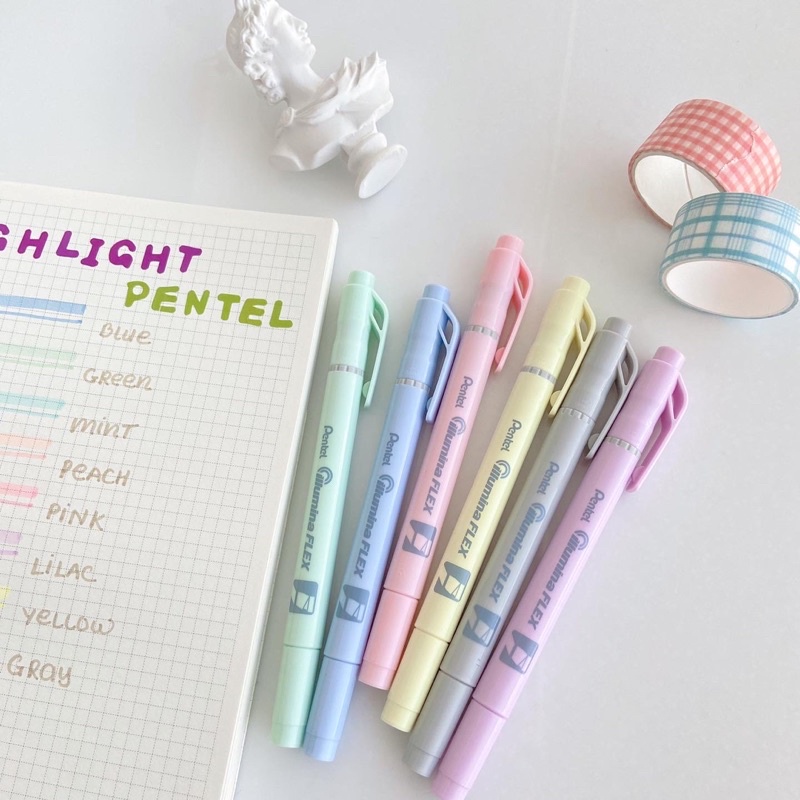 GHLIGHT
PENTEL
Blue
Green
MINT
PEACH
PiNK
LiLAC
Yellow
GRAY
Pentel illumina FLEX
Pentel illumina FLEX
Pentel illumina FLEX
Pentel illumina FLEX
Pentel illumina FLEX
Pentel illumina FLEX